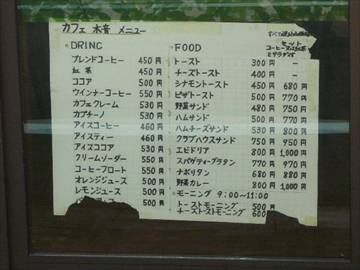 カフェ 木音 メニュー
DRINC
ブレンドコーヒー 450円
紅茶 450円
ココア 500円
ウインナーコーヒー 550円
カフェクレーム 530円
カプチーノ 530円
アイスコーヒー 460円
アイスティー 460円
アイスココア 530円
クリームソーダー 550円
コーヒーフロート 550円
オレンジジュース 500円
レモンジュース 500円
500円
FOOD
セット
トースト 300円 ー
チーズトースト 400円 ー
シナモントースト 450円 680円
ピザトースト 500円 770円
野菜サンド 480円 750円
ハムサンド 500円 770円
ハムチーズサンド 530円 800円
クラブハウスサンド 750円 950円
エビドリア 800円 1,000円
スパゲティーグラタン 770円 970円
ナポリタン 680円 880円
野菜カレー 800円 1,000円
モーニング 9:00〜11:00
トーストモーニング 500円
チーズトーストモーニング 600